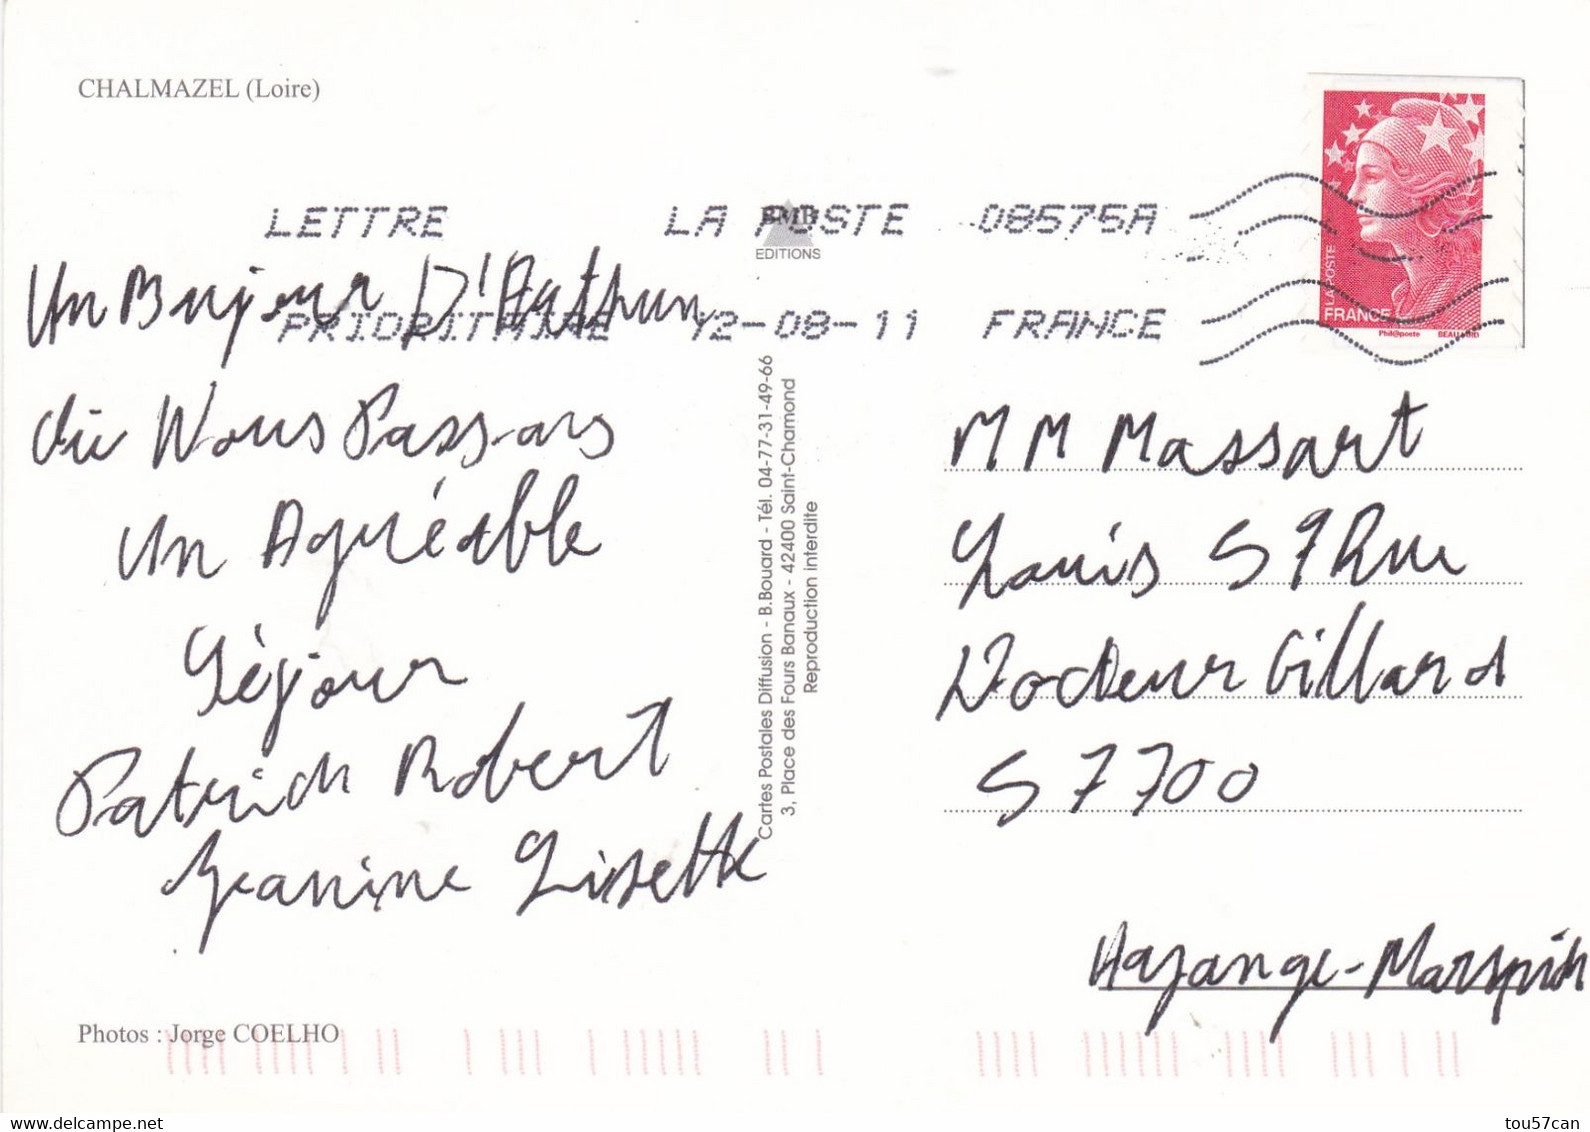 CHALMAZEL (Loire)
LETTRE LA POSTE 08575A
PRIORITAIRE 12-08-11 FRANCE
BMB
EDITIONS
LA POSTE
FRANCE
Phil@poste BEAUJARD
Un Bujour D'Arthun
du Nous Passons
un Agréable
Séjour
Patrick Robert
Jeanine Lisette
Cartes Postales Diffusion - B.Bouard - Tél. 04-77-31-49-66
3, Place des Fours Banaux - 42400 Saint-Chamond
Reproduction interdite
M M Massart
Louis 57 Rue
Docteur Gillard
57700
Hayange-Marspich
Photos : Jorge COELHO
tou57can